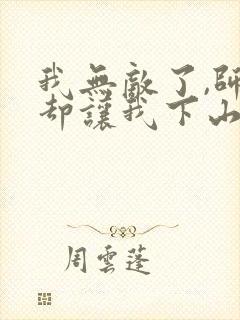 我無敵了,師
却讓我下山
周雲蓬